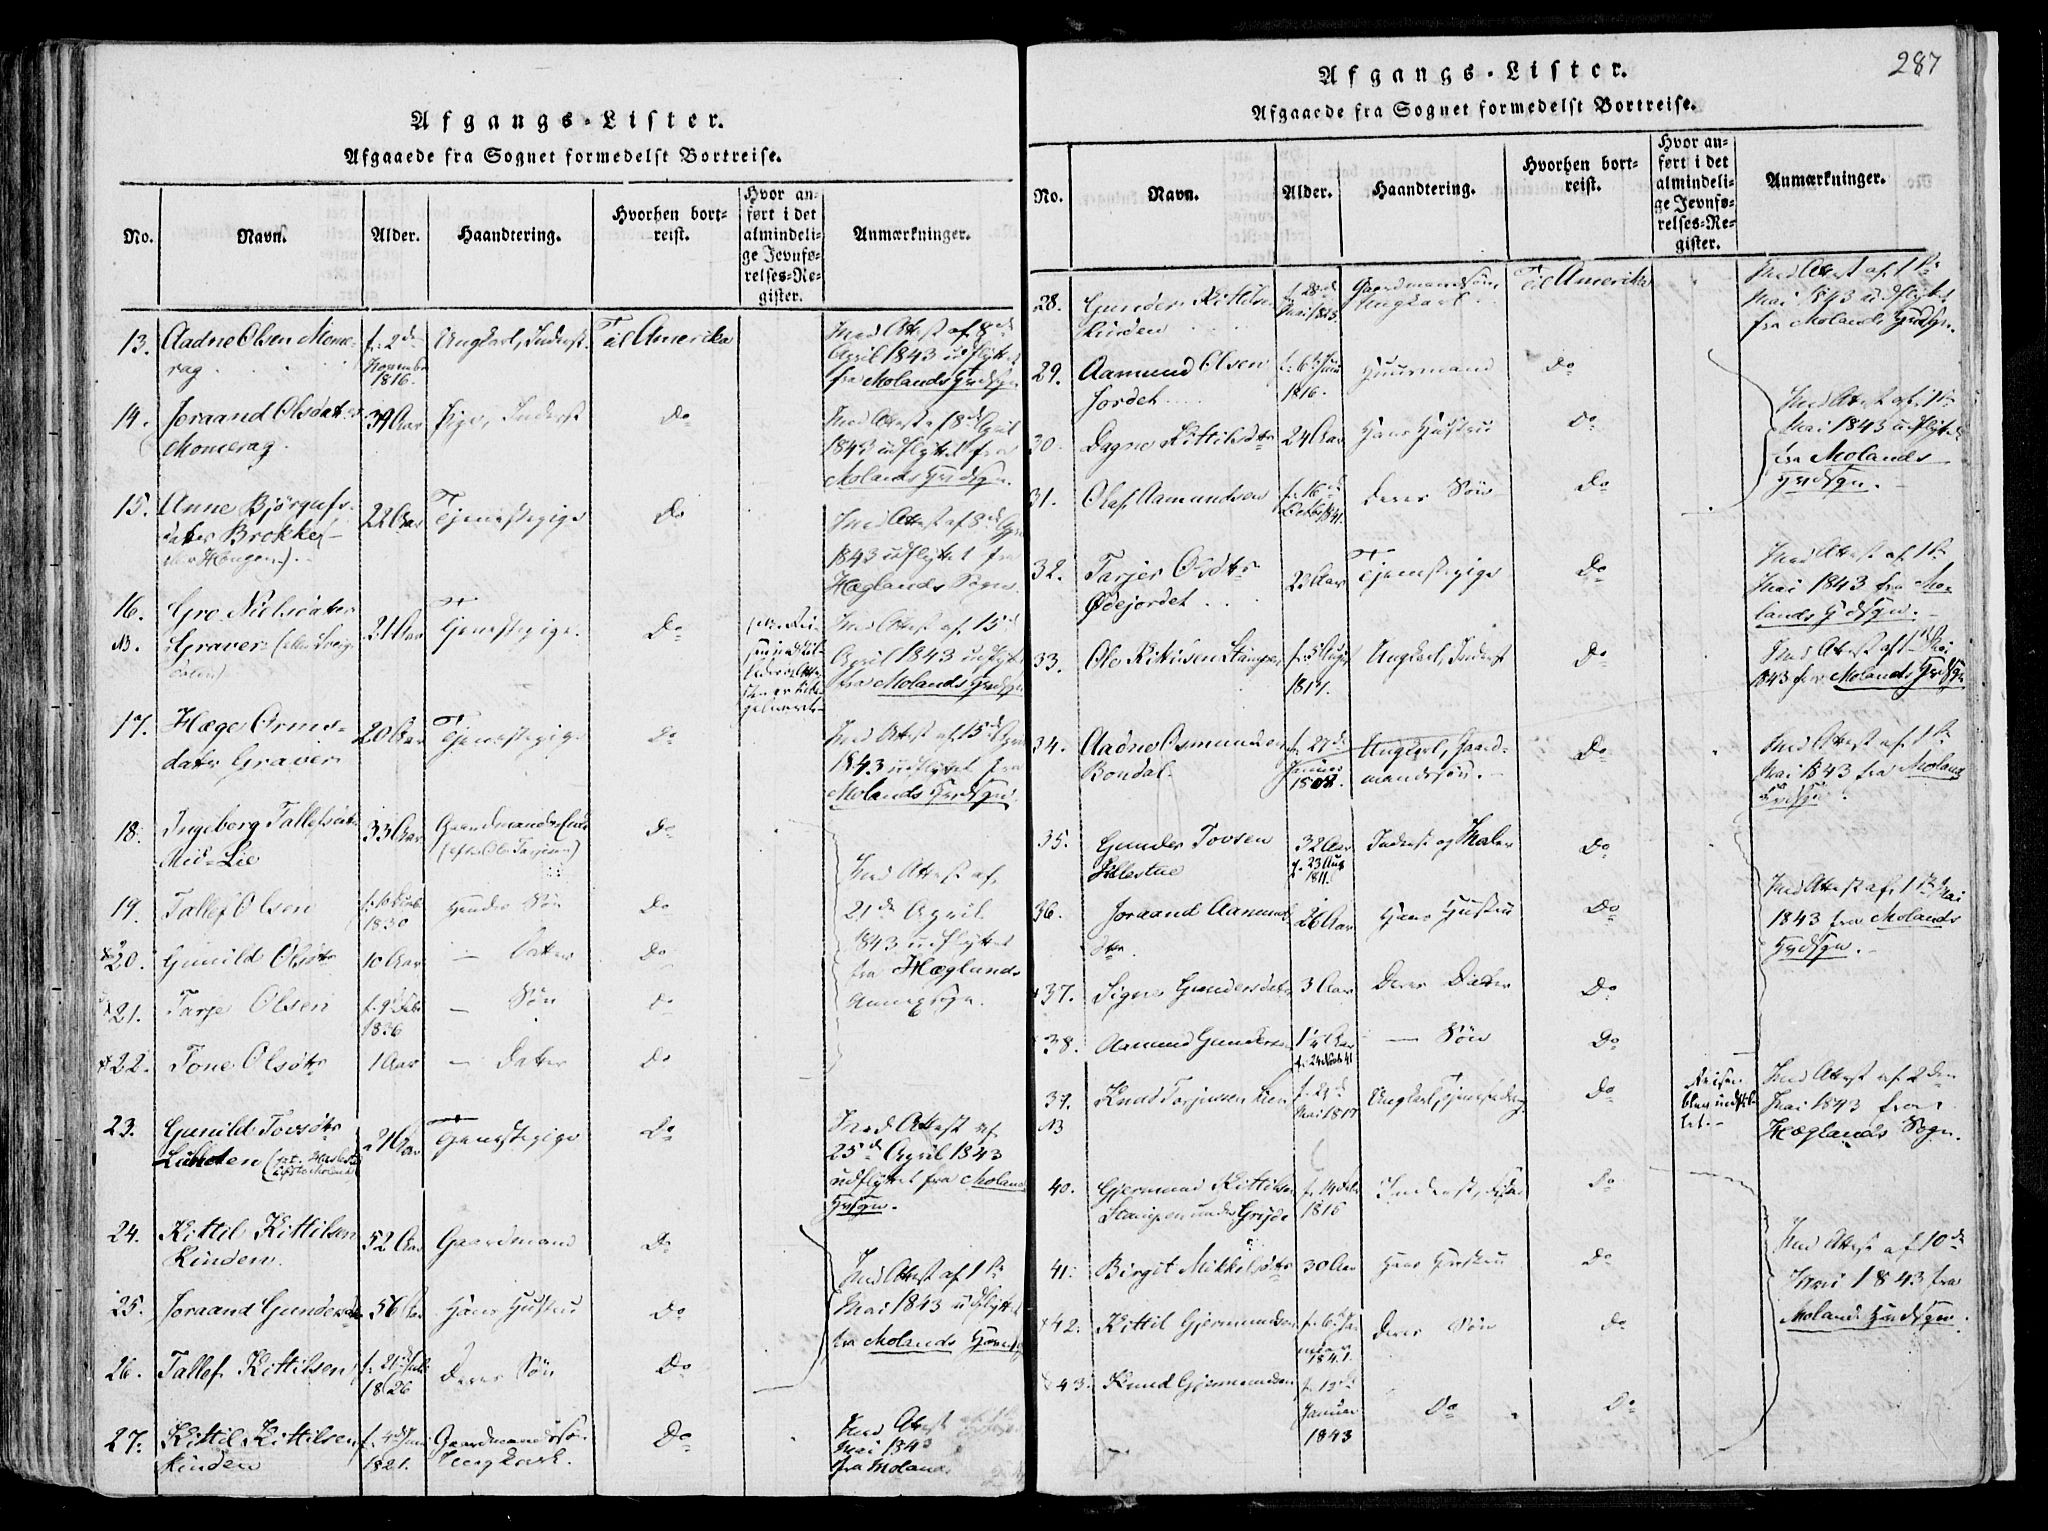 Afgangs-Lister.
Afgaaede fra Sognet formedelst Bortreise.
No. Navn. Alder. Haandtering. Hvorhen bort-reist. Hvor an-ført i det almindeli-ge Jevnfø-relses-Re-gister. Anmærkninger.
13. Aadne Olsen Mome-
rag f. 2d Novembr 1816. Ungkarl, Inderst Til Amerika Med Attest af 8de
April 1843 udflyttet
fra Molands Hvdsgn.
14. Joraand Olsdatter
Momerag. 39 Aar Pige, Inderst Do Med Attest af 8d April
1843 udflyttet fra
Molands Hvdsgn.
15. Anne Bjørgufs-
datter Brokke 22 Aar Tjenestepige Do Med Attest af 8d April
1843 udflyttet fra
Hæglands Sogn.
16. Gro Nielsdatter
NB. Graver 21 Aar Tjenestepige. Do Med Attest af 15d
April 1843 udflyt
fra Molands Hvdsgn
17. Hæge Orms-
datter Graver 20 Aar Tjenestepige Do Med Attest af 15d April
1843 udflyttet fra
Molands Hvdsgn.
18. Ingeborg Tallefsdatr
Mid-Lie 33 Aar Gaardmands Enke
(efter Ole Tarjesen) Do
Med Attest af
21d April
1843 udflyttet
fra Hæglands
Annexsogn.
19. Tallef Olsen 1830 hendes Søn Do
20. Gunild Olsdtr 10 Aar — Datter Do
21. Tarje Olsen 1836 — Søn Do
22. Tone Olsdtr 1 Aar — Datter Do
23. Gunild Tovsdtr
Lunden 21 Aar Tjenestepige Do Med Attest af
25d April 1843
udflyttet fra Moland
Hvdsgn.
24. Kittil Kittilsen
Rinden. 52 Aar Gaardmand Do
Med Attest af 1ste
Mai 1843 udflyttet
fra Molands Hovedsgn
25. Joraand Gundersdtr 56 Aar Hans Hustru Do
26. Tallef Kittilsen 1826 Deres Søn Do
27. Kittil Kittilsen
Rinden 1821. Gaardmandssøn
Ungkarl. Do Med Attest af 1ste
Mai 1843
fra Moland
287
Afgangs-Lister.
Afgaaede fra Sognet formedelst Bortreise.
No. Navn. Alder. Haandtering. Hvorhen bort-reist. Hvor an-ført i det almindeli-ge Jevnfø-relses-Re-gister. Anmærkninger.
28. Gunder Kittilsen
Rinden Gaardmandssøn
Ungkarl. Til Amerika Med Attest af 1ste
Mai 1843 udflyttet
fra Molands Hvdsgn.
29. Aamund Olsen
Jordet 1816. Huusmand Do
Med Attest af 1ste
Mai 1843 udflyttet
fra Molands
Hvdsgn.
30. Dagne Kittilsdtr 24 Aar Hans Hustru Do
31. Olaf Aamundsen 1841. Deres Søn Do
32. Tarjer Osdtr
Øiejordet 23 Aar Tjenestepige Do Med Attest af 1ste
Mai 1843 fra Mo-
lands Hvdsgn.
33. Ole Stampen 1817. Ungkarl, Inderst Do Med Attest af 1ste Mai
1843 fra Molands Hvdsgn
34. Aadne Osmundsen
Bondal. f. 27de Januar 1808. Ungkarl, Gaard-
mandssøn. Do Med Attest af 1ste
Mai 1843 fra Moland
Hvdsgn.
35. Gunder Tovsen 32 Aar
f. 23 Aug 1811. Inderst og Maler Do
Med Attest af 1ste Mai
1843 fra Molands
Hvdsgn.
36. Joraand Aamunds
dtr. 26 Aar Hans Hustru Do
37. Signe Gundersdatter 3 Aar Deres Datter Do
38. Aamund Gundersen — Søn Do
39. Knud Torjussen Lien
NB f. 29d Mai 1817 Ungkarl, Do Reisen
blev indstil-
let. Med Attest af 2den
Mai 1843 fra
Hæglands Sogn.
40. Gjermund Kittilsen
Stampen under Greibe 1815 Inderst, Do
Med Attest af 10de
Mai 1843 fra
Molands Hvdsgn.
41. Birgit Mikkelsdtr 30 Aar Hans Hustru Do
42. Kittil Gjermundsen f. 6te Januar 1841. Deres Søn Do
43. Knud Gjermundsen Januar 1843 Do Do